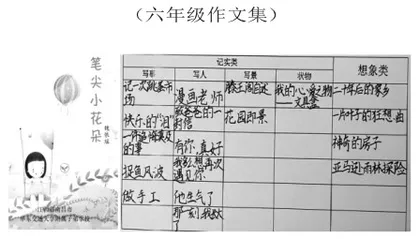 （六年级作文集）
笔尖小花朵
记实类
想象类
写形
写人
写景
状物
记一次跳蚤市场
漫画老师
滕王阁自述
我的心爱之物
——文具盒
二十年后的家乡
快乐的“泪”
给爸爸的一封信
花园即景
一片叶子的狂想曲
一件追悔莫及的事
有你，真好
神奇的房子
捉鱼风波
我多想再次遇见你
亚马逊雨林探险
做手工
他生气了
那一刻我默了